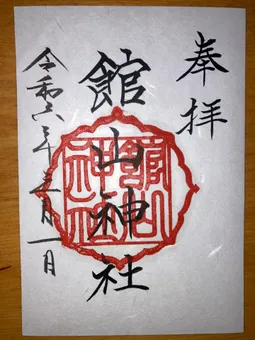 奉拝
館山神社
令和六年三月一日
館山神社